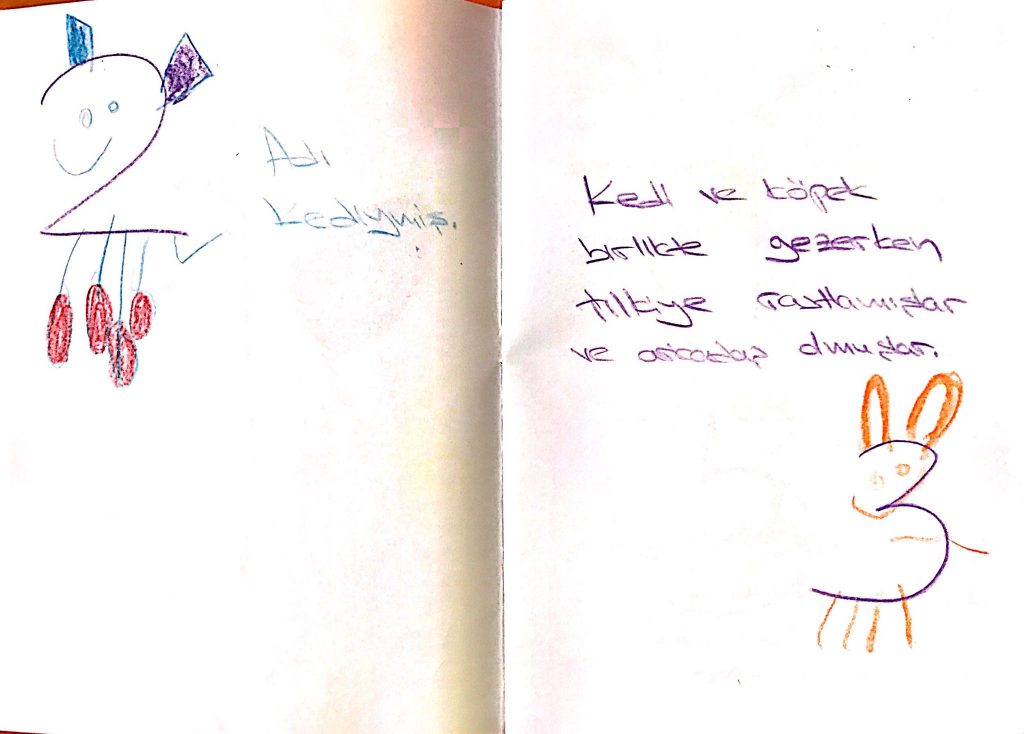 Adı
Kediymiş.
Kedi ve köpek
birlikte gezerken
tilkiye rastlamışlar
ve arkadaş olmuşlar.